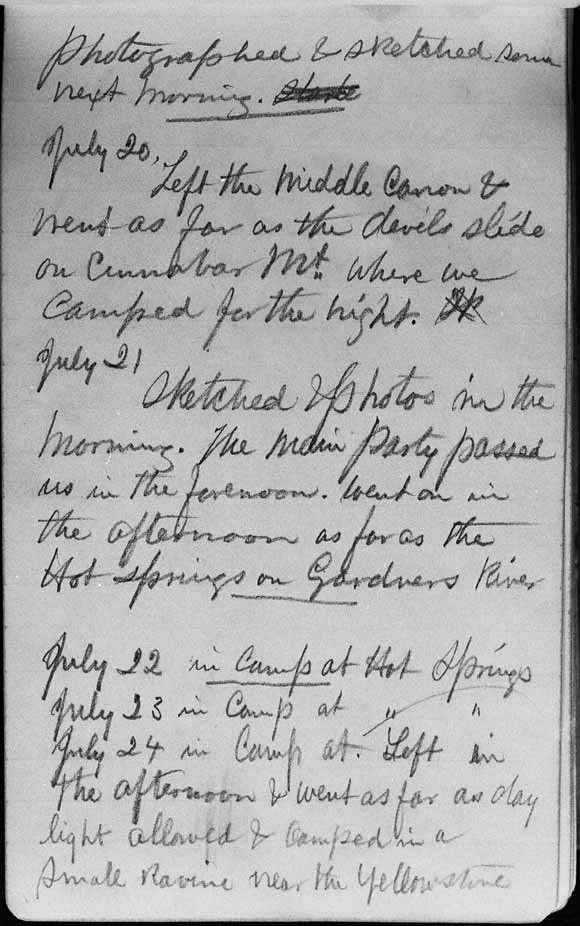 photographed & sketched some
next morning.
July 20,
Left the Middle Canon &
went as far as the devils slide
on Cinnabar Mt. where we
Camped for the night.
July 21
Sketched & photos in the
morning. The main party passed
us in the forenoon. went on in
the afternoon as far as the
Hot springs on Gardners River
July 22 in Camp at Hot Springs
July 23 in Camp at " "
July 24 in Camp at. Left in
the afternoon & went as far as day
light allowed & Camped in a
small Ravine near the Yellowstone